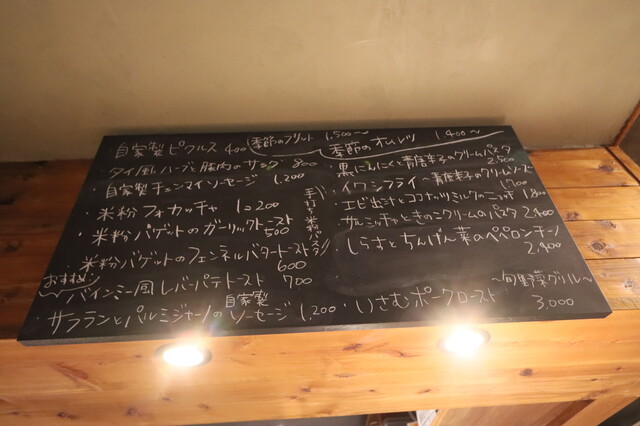 自家製ピクルス 400
季節のフリット 1,500〜
季節のオムレツ 1,400〜
・タイ風ハーブと豚肉のサラダ 800
・自家製チェンマイソーセージ 1,200
・米粉フォカッチャ 1コ200
・米粉バゲットのガーリックトースト
500
・米粉バゲットのフェネルバタートースト
600
おすすめ!
バインミー風レバーパテトースト 700
自家製
・サフランとパルミジャーノのソーセージ 1,200
手打ち米粉パスタ
黒にんにくと青唐辛子のクリームパスタ
2,500
・イワシフライ 青唐辛子のクリームソース
1,700
・エビ出汁とココナッツミルクの
1,800
・サルシッチャときのこクリームのパスタ 2,400
しらすとちんげん菜のペペロンチーノ
2,400
〜旬野菜グリル〜
・いさむポークロースト 3,000